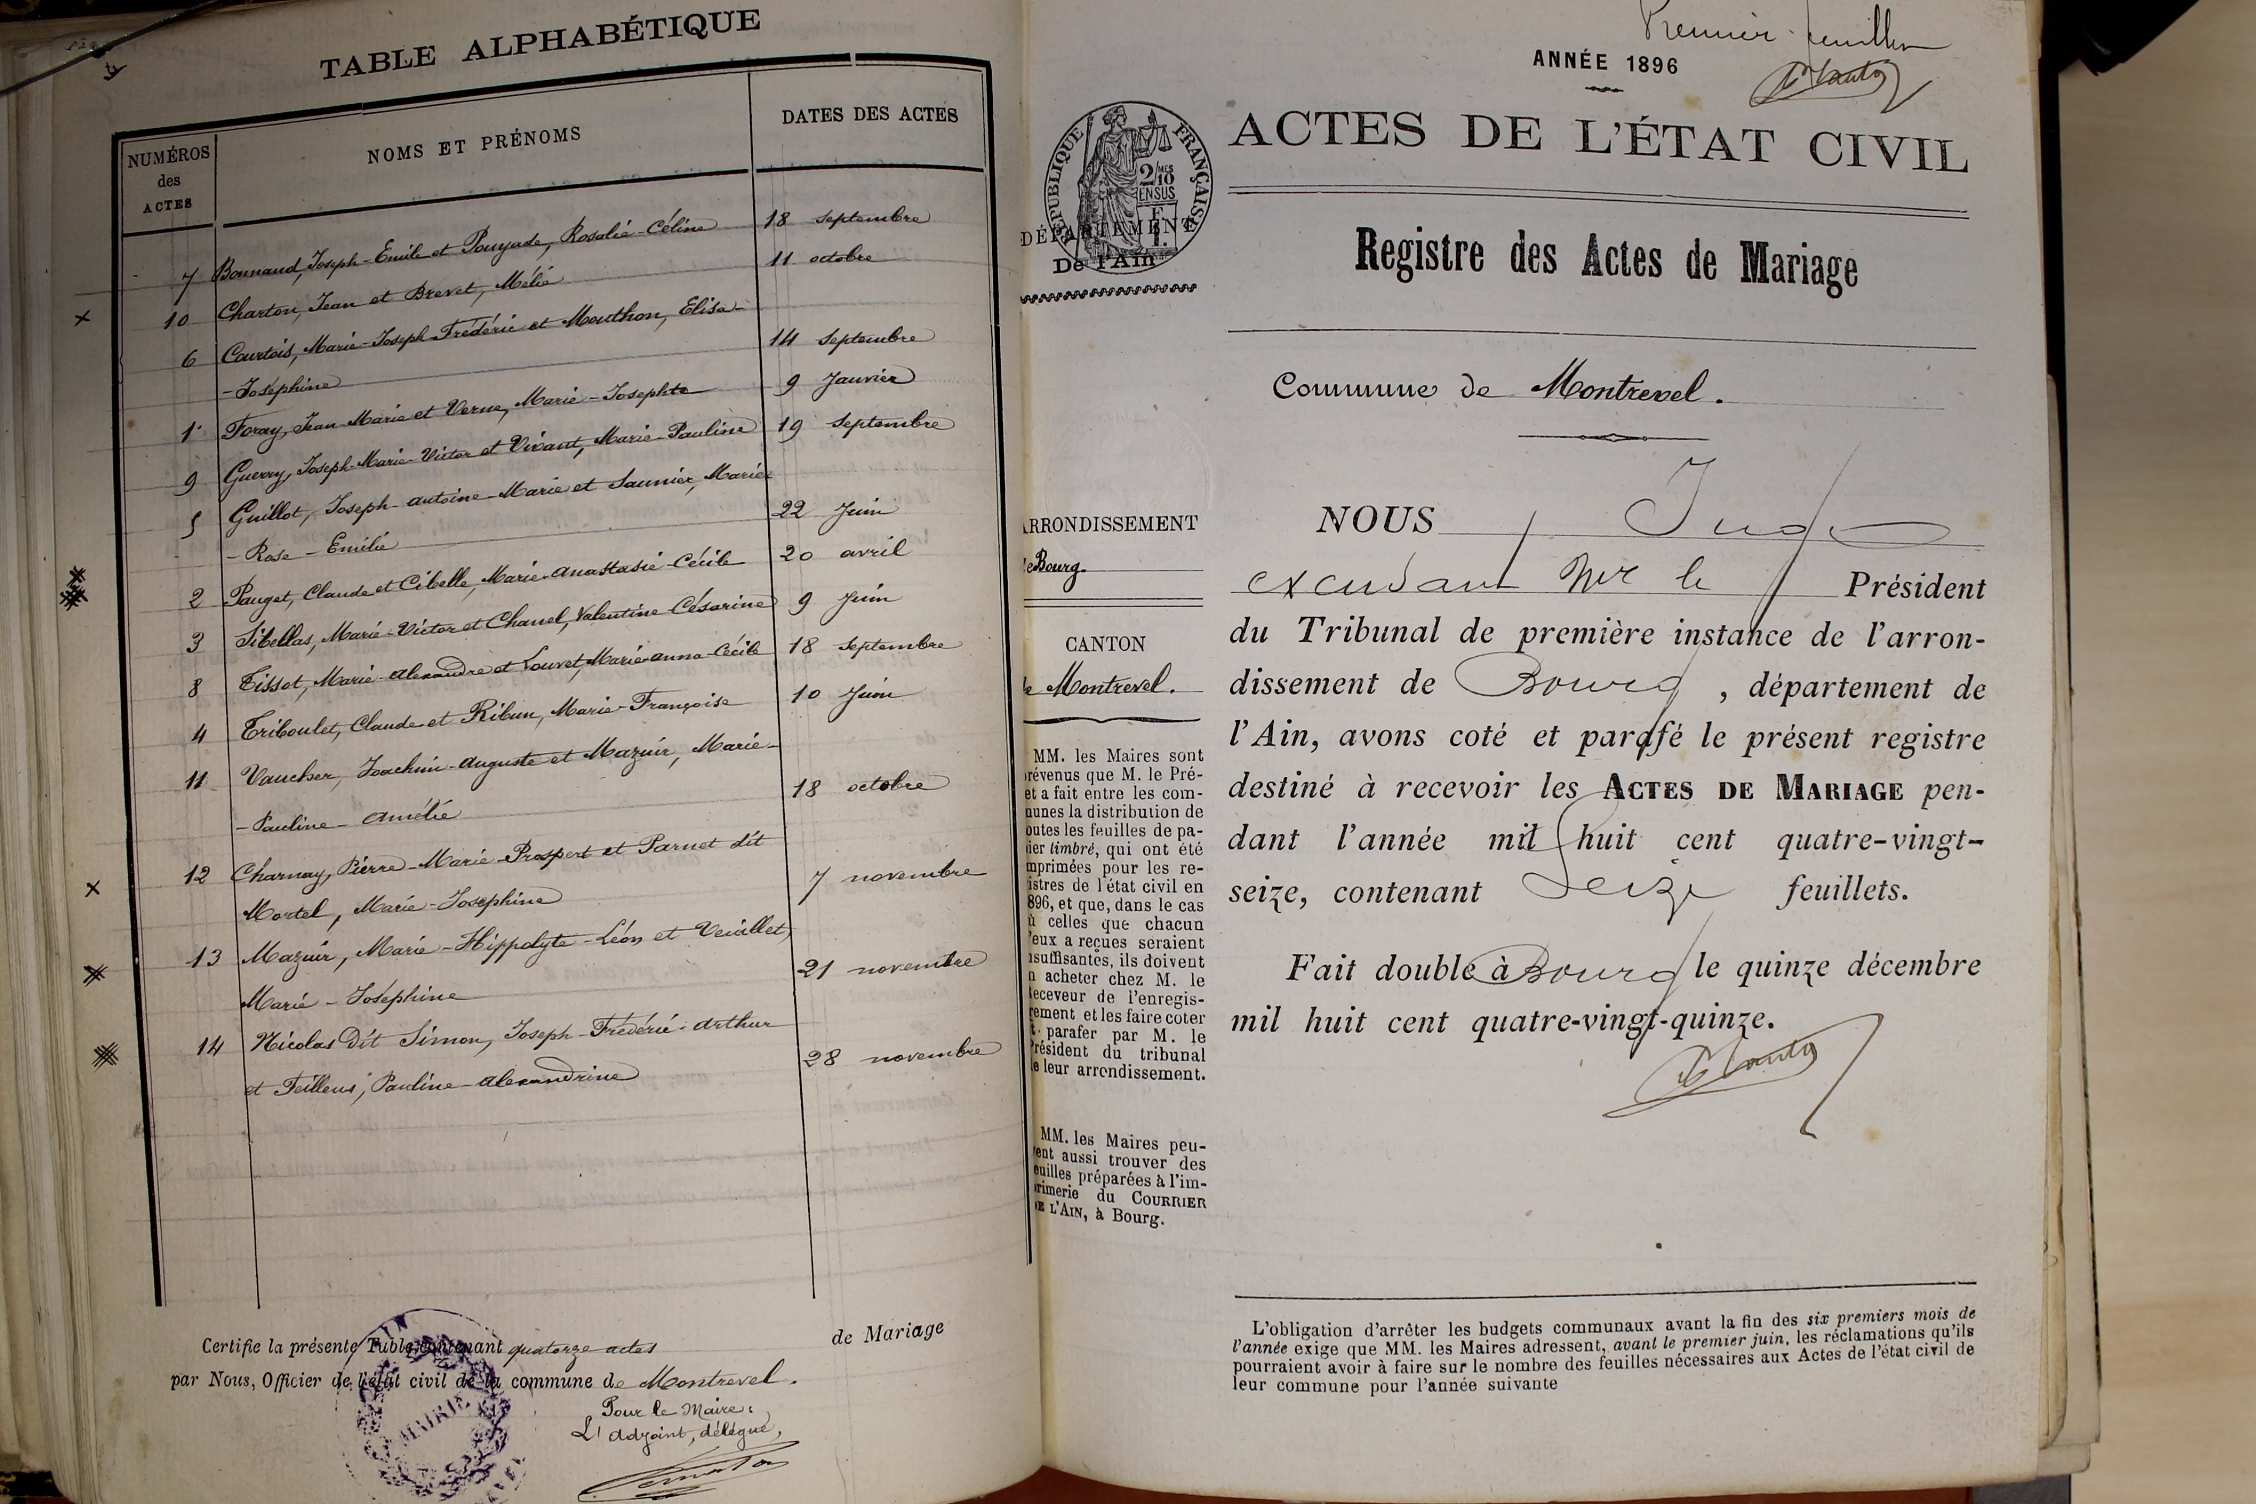 TABLE ALPHABÉTIQUE
NUMÉROS des ACTES
NOMS ET PRÉNOMS
DATES DES ACTES
7 Bonnaud, Joseph-Emile et Pouyade, Rosalie-Céline 18 septembre
10 Charton, Jean et Brevet, Mélie 11 octobre
6 Courtois, Marie-Joseph-Frédéric et Mouthon, Elisa-
-Joséphine 14 septembre
1 Foray, Jean-Marie et Verne, Marie-Josephte 9 Janvier
9 Guerry, Joseph-Marie-Victor et Vivant, Marie-Pauline 19 septembre
5 Guillot, Joseph-antoine-Marie et Saunier, Marie-
-Rose-Emélie 22 Juin
2 Pauget, Claude et Cibelle, Marie-Anastasie-Cécile 20 avril
3 Sibellas, Marie-Victor et Chanel, Valentine-Césarine 9 Juin
8 Tissot, Marie-Alexandre et Louvet, Marie-anna-Cécile 18 septembre
4 Triboulet, Claude et Ribun, Marie-Françoise 10 Juin
11 Vaucher, Joachim-Auguste et Mazuir, Marie-
-Pauline-Amélie 18 octobre
12 Charnay, Pierre-Marie-Prosper et Parnet dit
Mortel, Marie-Joséphine 7 novembre
13 Mazuir, Marie-Hippolyte-Léon et Veuillet,
Marie-Joséphine 21 novembre
14 Nicolas Dit Simon, Joseph-Frédéric-Arthur
et Feillens, Pauline-Alexandrine 28 novembre
Certifie la présente Table contenant quatorze actes de Mariage
par Nous, Officier de l'état civil de la commune de Montrevel.
Pour le Maire:
L'adjoint, délégué,
MAIRIE
Premier feuillet
ANNÉE 1896
ACTES DE L'ÉTAT CIVIL
RÉPUBLIQUE FRANÇAISE
2/10
EN SUS
DÉPARTEMENT
De l'Ain
Registre des Actes de Mariage
Commune de Montrevel.
ARRONDISSEMENT
de Bourg.
CANTON
de Montrevel.
MM. les Maires sont
prévenus que M. le Pré-
et a fait entre les com-
munes la distribution de
toutes les feuilles de pa-
pier timbré, qui ont été
imprimées pour les re-
gistres de l'état civil en
1896, et que, dans le cas
où celles que chacun
d'eux a reçues seraient
insuffisantes, ils doivent
en acheter chez M. le
Receveur de l'enregis-
trement et les faire coter
et parafer par M. le
Président du tribunal
de leur arrondissement.
MM. les Maires peu-
vent aussi trouver des
feuilles préparées à l'im-
primerie du COURRIER
DE L'AIN, à Bourg.
NOUS Juge
excusant Mr le Président
du Tribunal de première instance de l'arron-
dissement de Bourg, département de
l'Ain, avons coté et parafé le présent registre
destiné à recevoir les ACTES DE MARIAGE pen-
dant l'année mil huit cent quatre-vingt-
seize, contenant Seize feuillets.
Fait double à Bourg le quinze décembre
mil huit cent quatre-vingt-quinze.
L'obligation d'arrêter les budgets communaux avant la fin des six premiers mois de
l'année exige que MM. les Maires adressent, avant le premier juin, les réclamations qu'ils
pourraient avoir à faire sur le nombre des feuilles nécessaires aux Actes de l'état civil de
leur commune pour l'année suivante